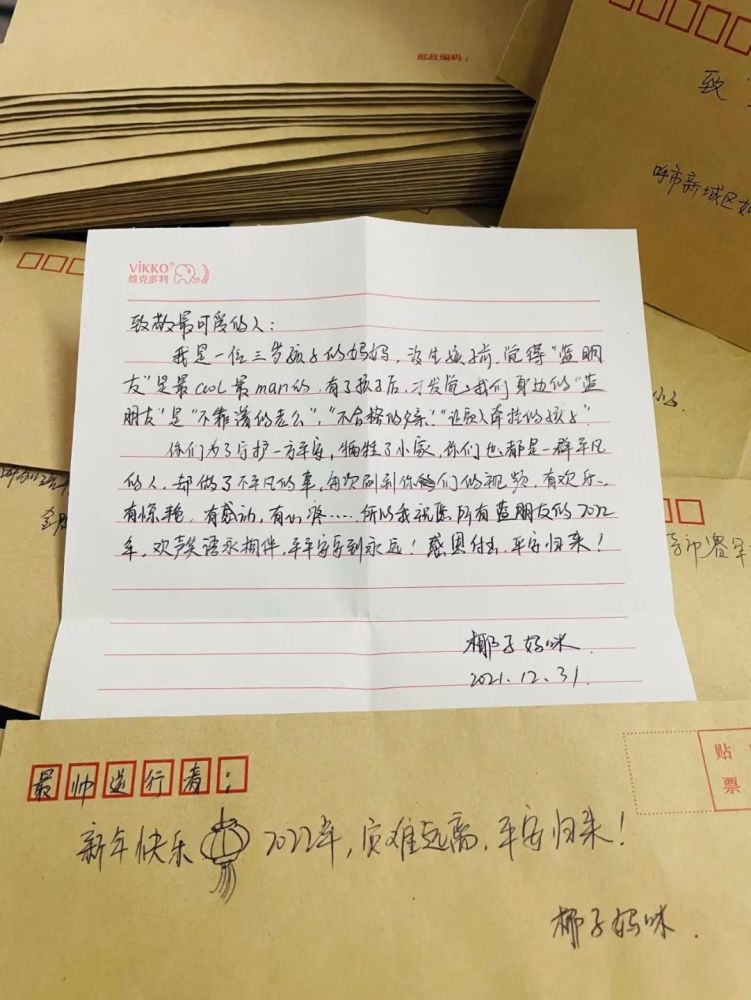 邮政编码：
致
呼市新城区
VIKKO®
维克多利
致敬最可爱的人：
我是一位三岁孩子的妈妈，没生孩子前，觉得“蓝朋
友”是最cool最man的，有了孩子后，才发觉，我们身边的“蓝
朋友”是“不靠谱的老公”，“不合格的父亲”，“让家人牵挂的孩子”
你们为了守护一方平安，牺牲了小家，你们也都是一群平凡
的人，却做了不平凡的事，每次刷到你们的视频，有欢乐、
有惊艳，有感动，有心疼……所以我祝愿所有蓝朋友的2022
年，欢声笑语永相伴，平平安安到永远！感恩付出，平安归来！
椰子妈咪
2021.12.31.
最帅逆行者：
贴
票
新年快乐 2022年，灾难远离，平安归来！
椰子妈咪.